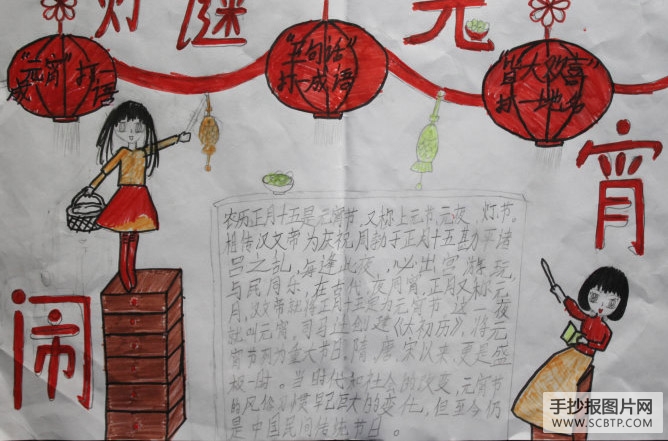 灯谜
元
宵
闹
"元宵"打一成语
"半句话"打一成语
"皆大欢喜"打一地名
农历正月十五是元宵节,又称上元节,元夜,灯节。
相传汉文帝为庆祝周勃于正月十五勘平诸
吕之乱,每逢此夜,必出宫游玩,
与民同乐,在古代,夜同宵,正月又称元
月,汉文帝就将正月十五定为元宵节,这一夜
就叫元宵,司马迁创建《太初历》,将元
宵节列为重大节日。隋,唐,宋以来,更是盛
极一时。当时代和社会的改变,元宵节
的风俗习惯早已巨大的变化,但至今仍
是中国民间传统节日。
手抄报图片网
WWW.SCBTP.COM